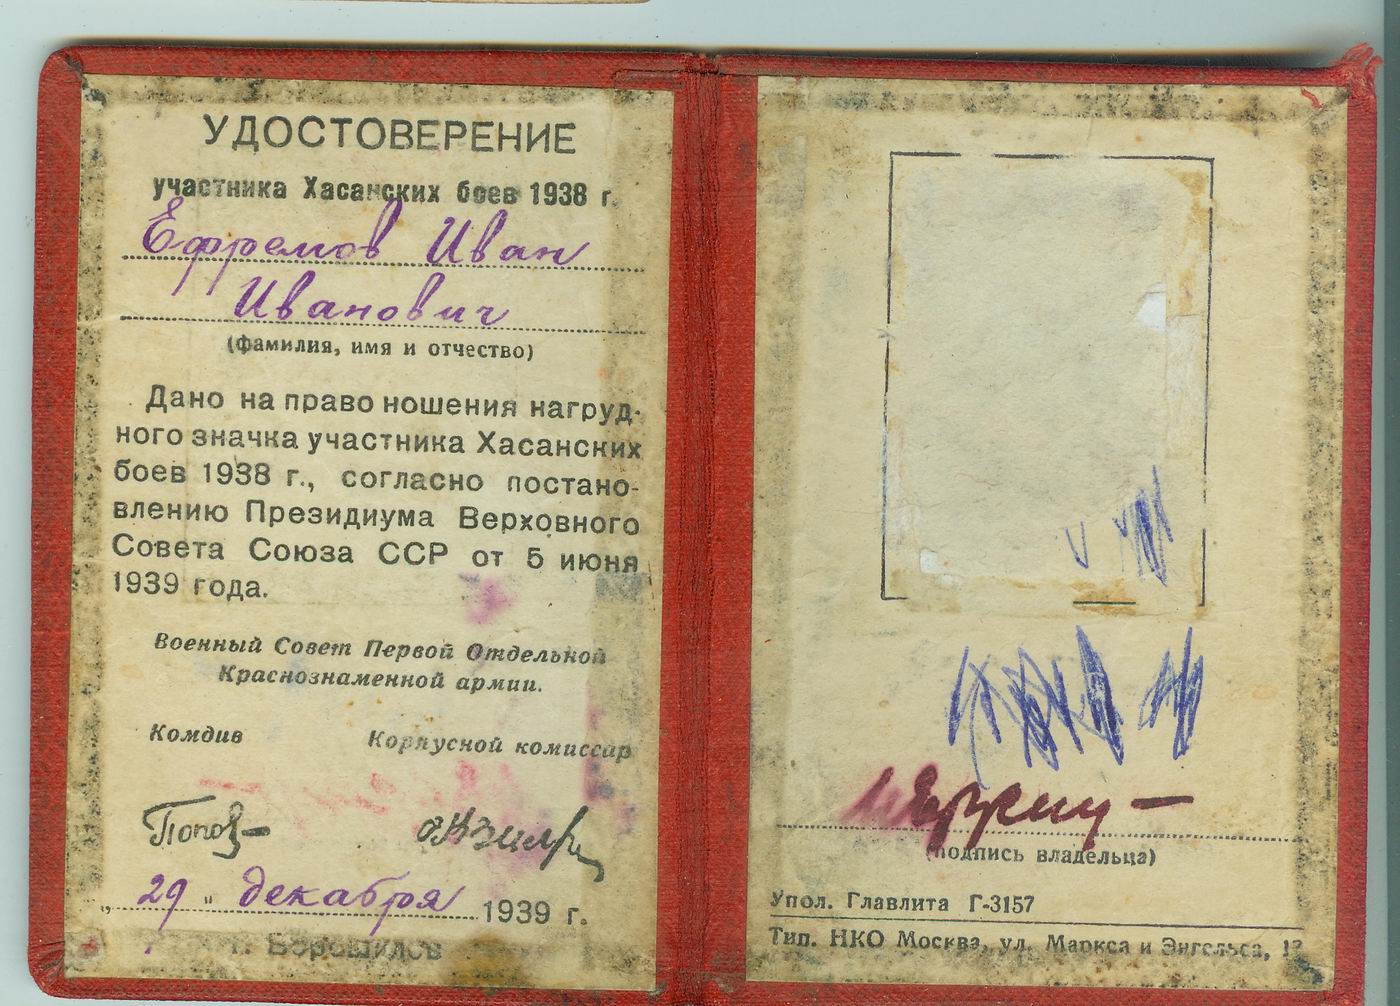 УДОСТОВЕРЕНИЕ
участника Хасанских боев 1938 г.
Ефремов Иван
Иванович
(фамилия, имя и отчество)
Дано на право ношения нагруд-
ного значка участника Хасанских
боев 1938 г., согласно постано-
влению Президиума Верховного
Совета Союза ССР от 5 июня
1939 года.
Военный Совет Первой Отдельной
Краснознаменной армии.
Комдив Корпусной комиссар
Попов
„ 29 " декабря 1939 г.
г. Ворошилов
(подпись владельца)
Упол. Главлита Г-3157
Тип. НКО Москва, ул. Маркса и Энгельса, 17